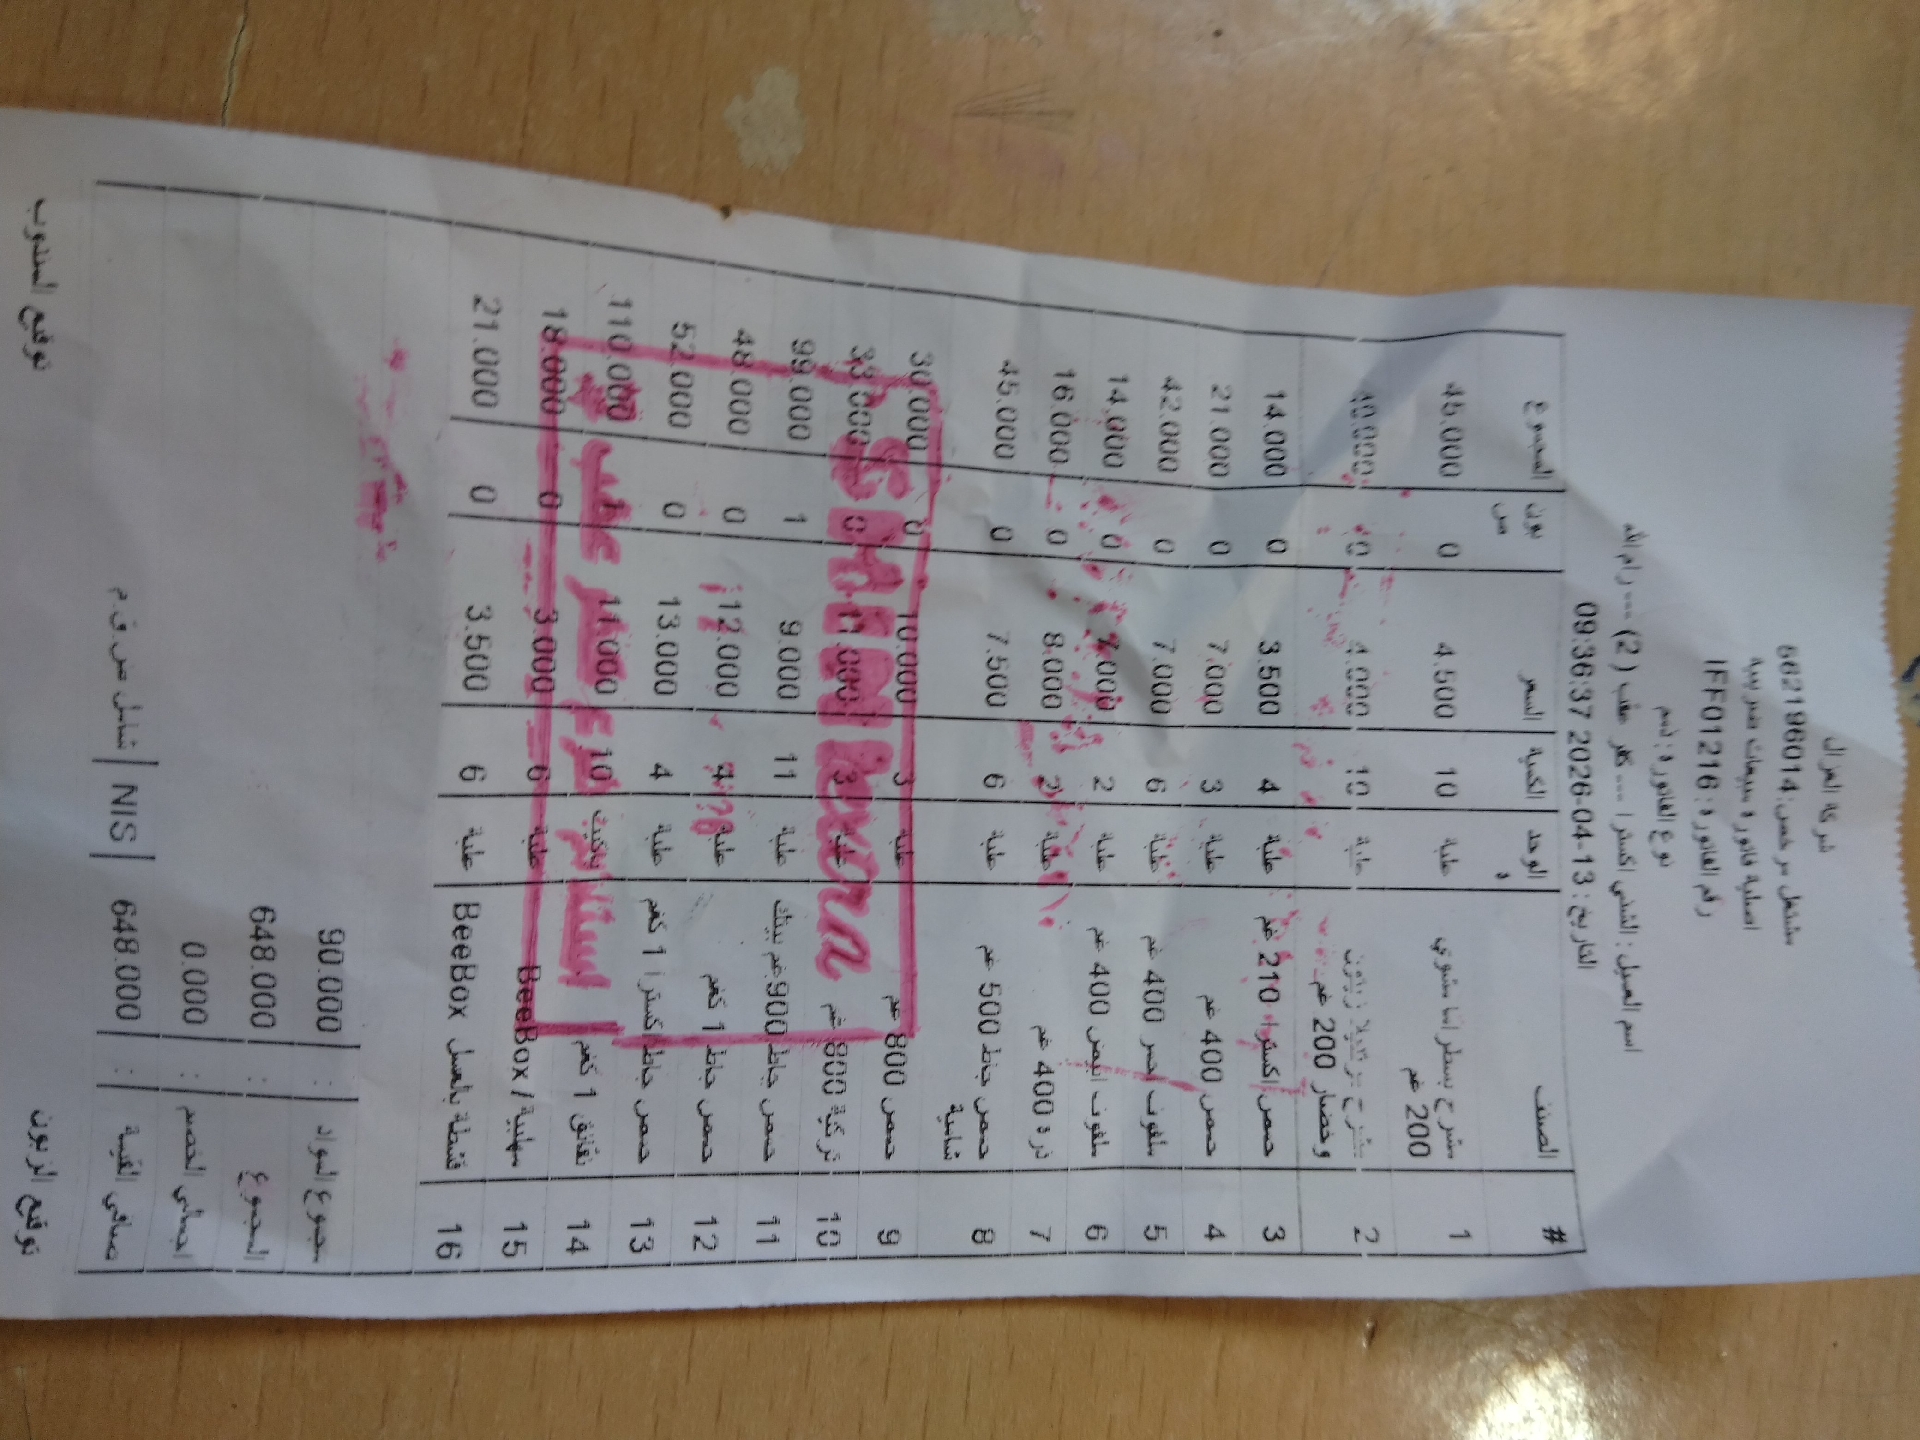 شركة الغزال
مشتغل مرخص: 562196014
اصلية فاتورة مبيعات ضريبية
رقم الفاتورة: IFF01216
نوع الفاتورة: ذمم
اسم العميل: الشني اكسترا --- كفر عقب (2) --- رام الله
التاريخ: 13-04-2026 09:36:37
# الصنف الوحدة الكمية السعر بونص المجموع
1 مشرح بسطرما مشوي 200 غم علبة 10 4.500 0 45.000
2 مشرح مرتديلا زيتون وخضار 200 غم علبة 10 4.000 0 40.000
3 حمص اكسترا 210 غم علبة 4 3.500 0 14.000
4 حمص 400 غم علبة 3 7.000 0 21.000
5 ملفوف احمر 400 غم علبة 6 7.000 0 42.000
6 ملفوف ابيض 400 غم علبة 2 7.000 0 14.000
7 ذرة 400 غم علبة 2 8.000 0 16.000
8 حمص جاط 500 غم شامية علبة 6 7.500 0 45.000
9 حمص 800 غم علبة 3 10.000 0 30.000
10 تركية 800 غم علبة 3 11.000 0 33.000
11 حمص جاط 900 غم بيتك علبة 11 9.000 1 99.000
12 حمص جاط 1 كغم علبة 4 12.000 0 48.000
13 حمص جاط اكسترا 1 كغم علبة 4 13.000 0 52.000
14 نقانق 1 كغم باكيت 10 11.000 110.000
15 مهلبية / BeeBox علبة 6 3.000 0 18.000
16 قشطة بلعسل BeeBox علبة 6 3.500 0 21.000
extra
استلام فرع عقب
مجموع المواد : 90.000
المجموع : 648.000
اجمالي الخصم : 0.000
صافي القيمة : 648.000 NIS شامل ض ق م
توقيع الزبون توقيع المندوب